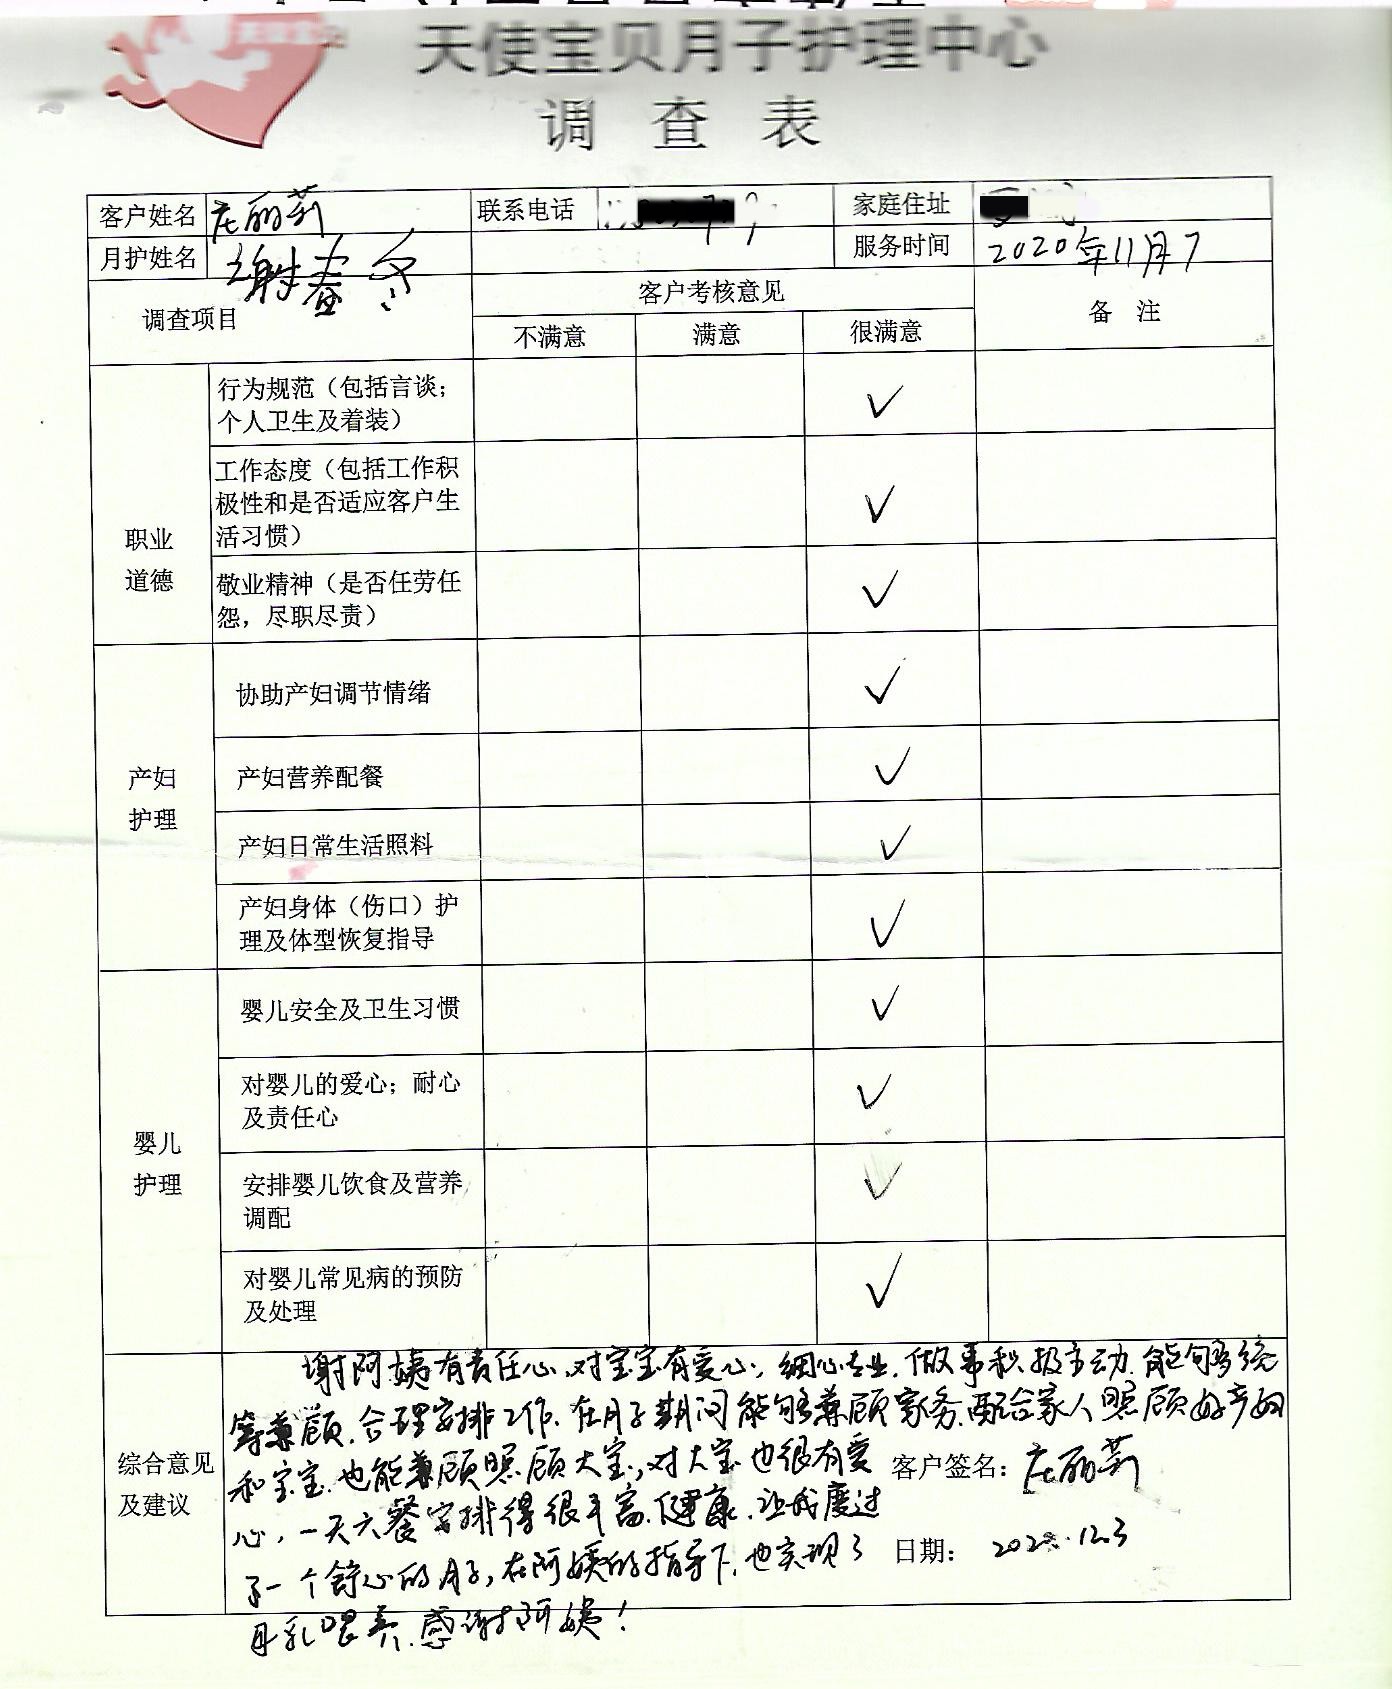 天使宝贝月子护理中心
调 查 表
客户姓名 庄丽莉 联系电话 家庭住址
月护姓名 谢春 服务时间 2020年11月7
调查项目 客户考核意见 备 注
不满意 满意 很满意
职业
道德
行为规范（包括言谈；
个人卫生及着装） ✓
工作态度（包括工作积
极性和是否适应客户生
活习惯） ✓
敬业精神（是否任劳任
怨，尽职尽责） ✓
产妇
护理
协助产妇调节情绪 ✓
产妇营养配餐 ✓
产妇日常生活照料 ✓
产妇身体（伤口）护
理及体型恢复指导 ✓
婴儿
护理
婴儿安全及卫生习惯 ✓
对婴儿的爱心；耐心
及责任心 ✓
安排婴儿饮食及营养
调配 ✓
对婴儿常见病的预防
及处理 ✓
综合意见
及建议
谢阿姨有责任心、对宝宝有爱心，细心专业，做事积极主动，能够统
筹兼顾，合理安排工作，在月子期间能够兼顾家务，配合家人照顾好产妇
和宝宝，也能兼顾照顾大宝，对大宝也很有爱
心，一天六餐安排得很丰富、健康，让我度过
了一个舒心的月子，在阿姨的指导下，也实现了
母乳喂养，感谢阿姨！
客户签名：庄丽莉
日期： 2020.12.3